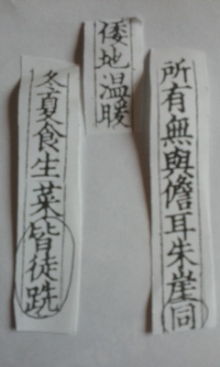 所有無與儋耳朱崖同
倭地温暖
冬夏食生菜皆徒跣